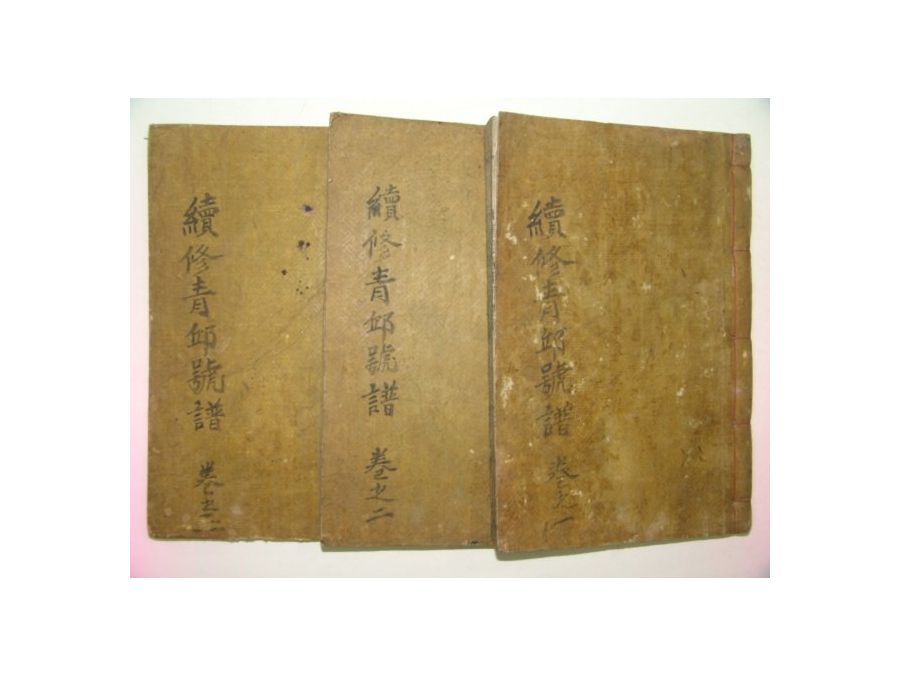 續修青邱號譜 卷之一
續修青邱號譜 卷之二
續修青邱號譜 卷之三